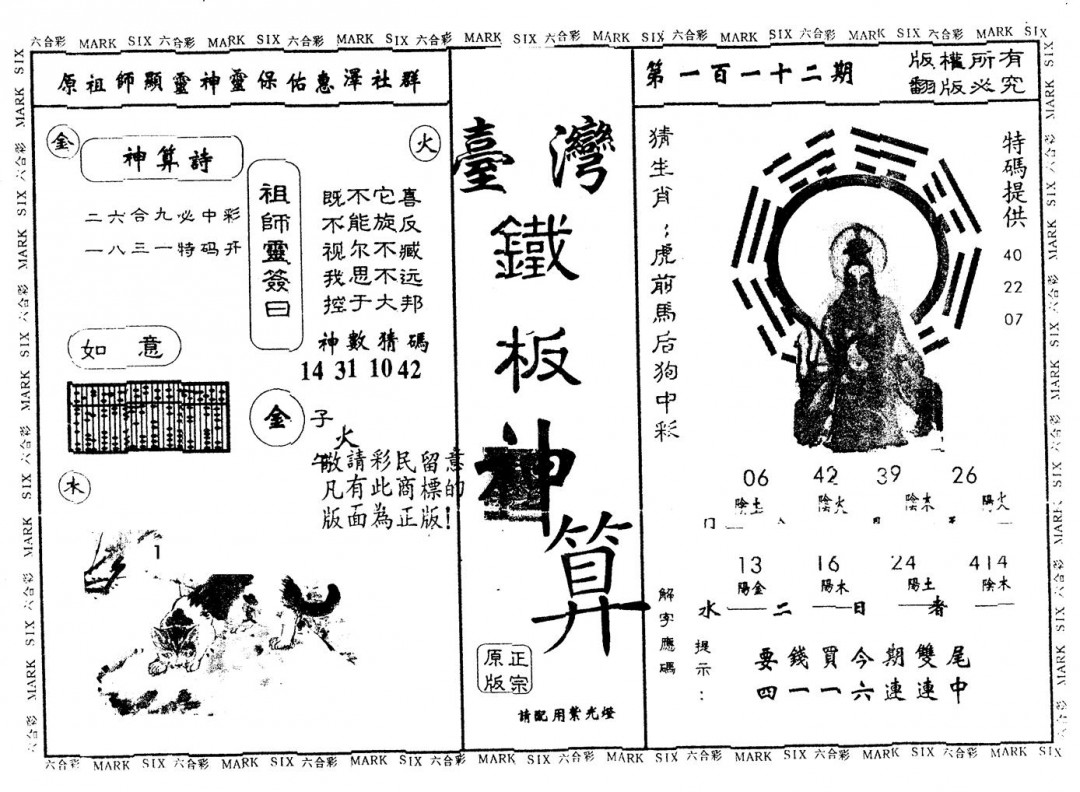 六合彩 MARK SIX 六合彩 MARK SIX 六合彩 MARK SIX 六合彩 MARK SIX 六合彩 MARK SIX 六合彩 MARK SIX 六合彩 MARK SIX 六合彩 MARK SIX
原祖師顯靈神靈保佑惠澤社群
金
火
神算詩
二六合九必中彩
一八三一特码开
祖師靈簽曰
既不它喜
不能旋反
视尔不臧
我思不远
控于大邦
神數猜碼
14 31 10 42
如意
金
子
火
午
敬請彩民留意
凡有此商標的
版面為正版!
木
1
臺灣
鐵
板
神
算
正宗
原版
請配用紫光燈
第一百一十二期
版權所有
翻版必究
猜生肖;虎前馬后狗中彩
特碼提供
40
22
07
06 42 39 26
陰土 陰火 陰木 陽火
13 16 24 414
陽金 陽木 陽土 陰木
水 二 日 者
解字應碼
提示:
要錢買今期雙尾
四一一六連連中
六合彩 MARK SIX 六合彩 MARK SIX 六合彩 MARK SIX 六合彩 MARK SIX 六合彩 MARK SIX 六合彩 MARK SIX 六合彩 MARK SIX 六合彩 MARK SIX